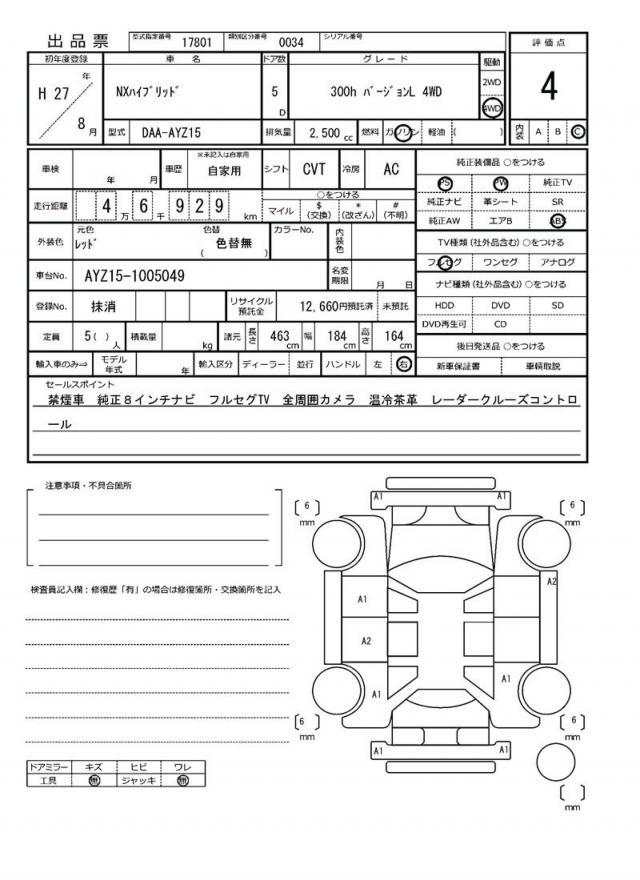 出品票 型式指定番号 17801 類別区分番号 0034 シリアル番号
初年度登録 車 名 ドア数 グレード 駆動 評価点
H 27 年 8 月 NXハイブリッド 5 D 300h バージョンL 4WD 2WD 4WD 4
型式 DAA-AYZ15 排気量 2,500 cc 燃料 ガソリン 軽油 ( ) 内装 A B C
車検 年 月 車歴 ※未記入は自家用 自家用 シフト CVT 冷房 AC
純正装備品 ○をつける
PS PW 純正TV
純正ナビ 革シート SR
純正AW エアB ABS
走行距離 4 万 6 千 9 2 9 km ○をつける
マイル $ (交換) * (改ざん) # (不明)
外装色 元色 レッド 色替 色替無 ( ) カラーNo. 内装色
TV種類 (社外品含む) ○をつける
フルセグ ワンセグ アナログ
車台No. AYZ15-1005049 名変期限 月 日
ナビ種類 (社外品含む) ○をつける
HDD DVD SD
DVD再生可 CD
登録No. 抹消 リサイクル預託金 12,660円預託済 未預託
定員 5( ) 人 積載量 kg 諸元 長さ 463 cm 幅 184 cm 高さ 164 cm
後日発送品 ○をつける
新車保証書 車輌取説
輸入車のみ⇒ モデル年式 年 輸入区分 ディーラー 並行 ハンドル 左 右
セールスポイント
禁煙車 純正8インチナビ フルセグTV 全周囲カメラ 温冷茶革 レーダークルーズコントロ
ール
注意事項・不具合箇所
検査員記入欄：修復歴「有」の場合は修復箇所・交換箇所を記入
A1 A1
6 mm
6 mm
A1 A2
A2
A1 A1
6 mm
6 mm
A1 A1
mm
ドアミラー キズ ヒビ ワレ
工具 無 ジャッキ 無